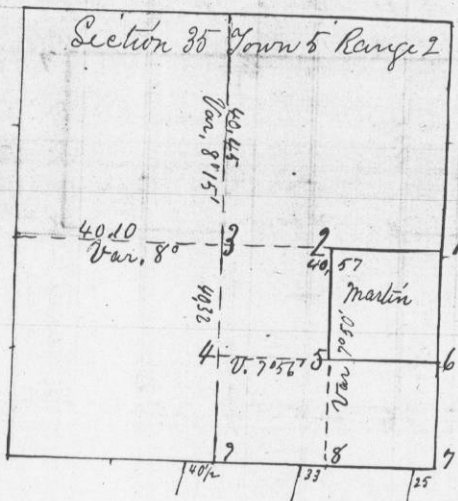 Section 35 Town 5 Range 2
40,45
Var. 8°15'
4010
Var. 8°
3
2
1
40,57
Martin
4032
Var 7°50'
4
V. 7°56'
5
6
9
8
7
40 1/2
33
25